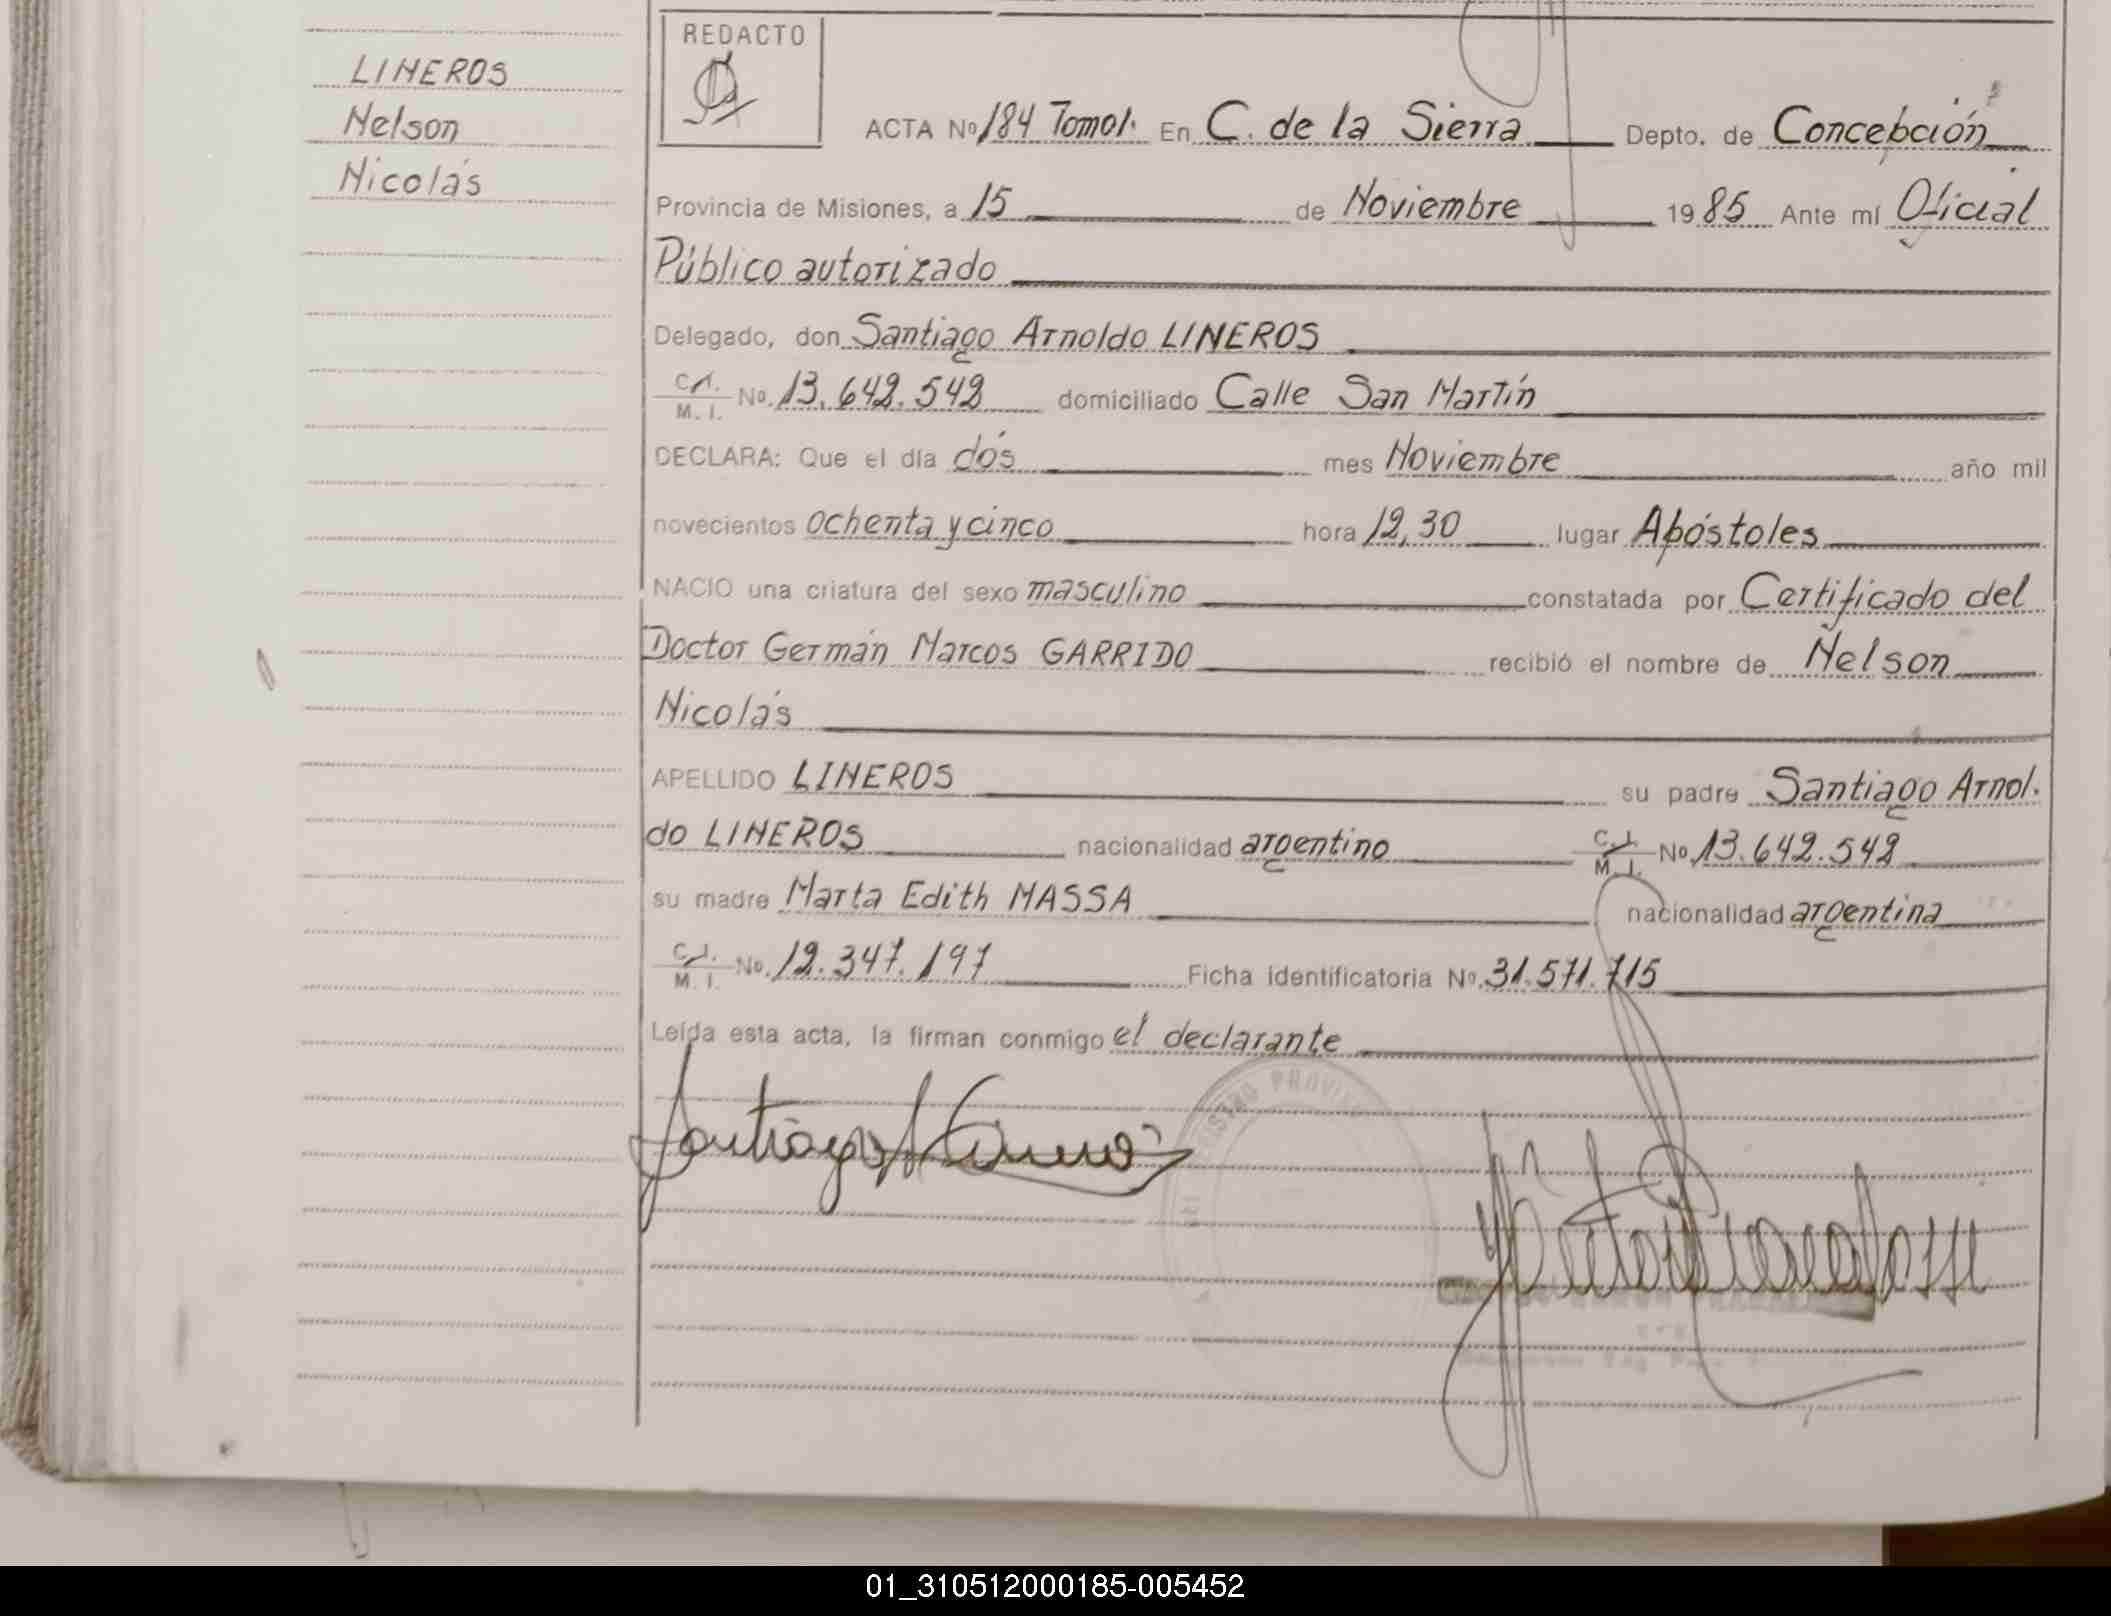 LINEROS
Nelson
Nicolás
REDACTO
ACTA Nº 184 Tomo I. En C. de la Sierra Depto. de Concepción
Provincia de Misiones, a 15 de Noviembre 1985 Ante mí Oficial
Público autorizado
Delegado, don Santiago Arnoldo LINEROS
C.I.
M. I. No. 13.642.542 domiciliado Calle San Martín
DECLARA: Que el día dós mes Noviembre año mil
novecientos ochenta y cinco hora 12,30 lugar Apóstoles
NACIO una criatura del sexo masculino constatada por Certificado del
Doctor Germán Marcos GARRIDO recibió el nombre de Nelson
Nicolás
APELLIDO LINEROS su padre Santiago Arnol.
do LINEROS nacionalidad argentino C.I. M. I. No. 13.642.542
su madre Marta Edith MASSA nacionalidad argentina
C.I.
M. I. No. 12.347.197 Ficha identificatoria No. 31.571.715
Leída esta acta, la firman conmigo el declarante
Santiago A Lineros
REGISTRO PROVIN
01_310512000185-005452